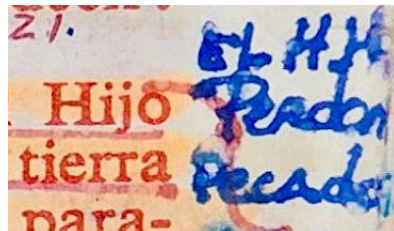 21.
Hijo
tierra
para-
EL HH
Perdon
Pecado